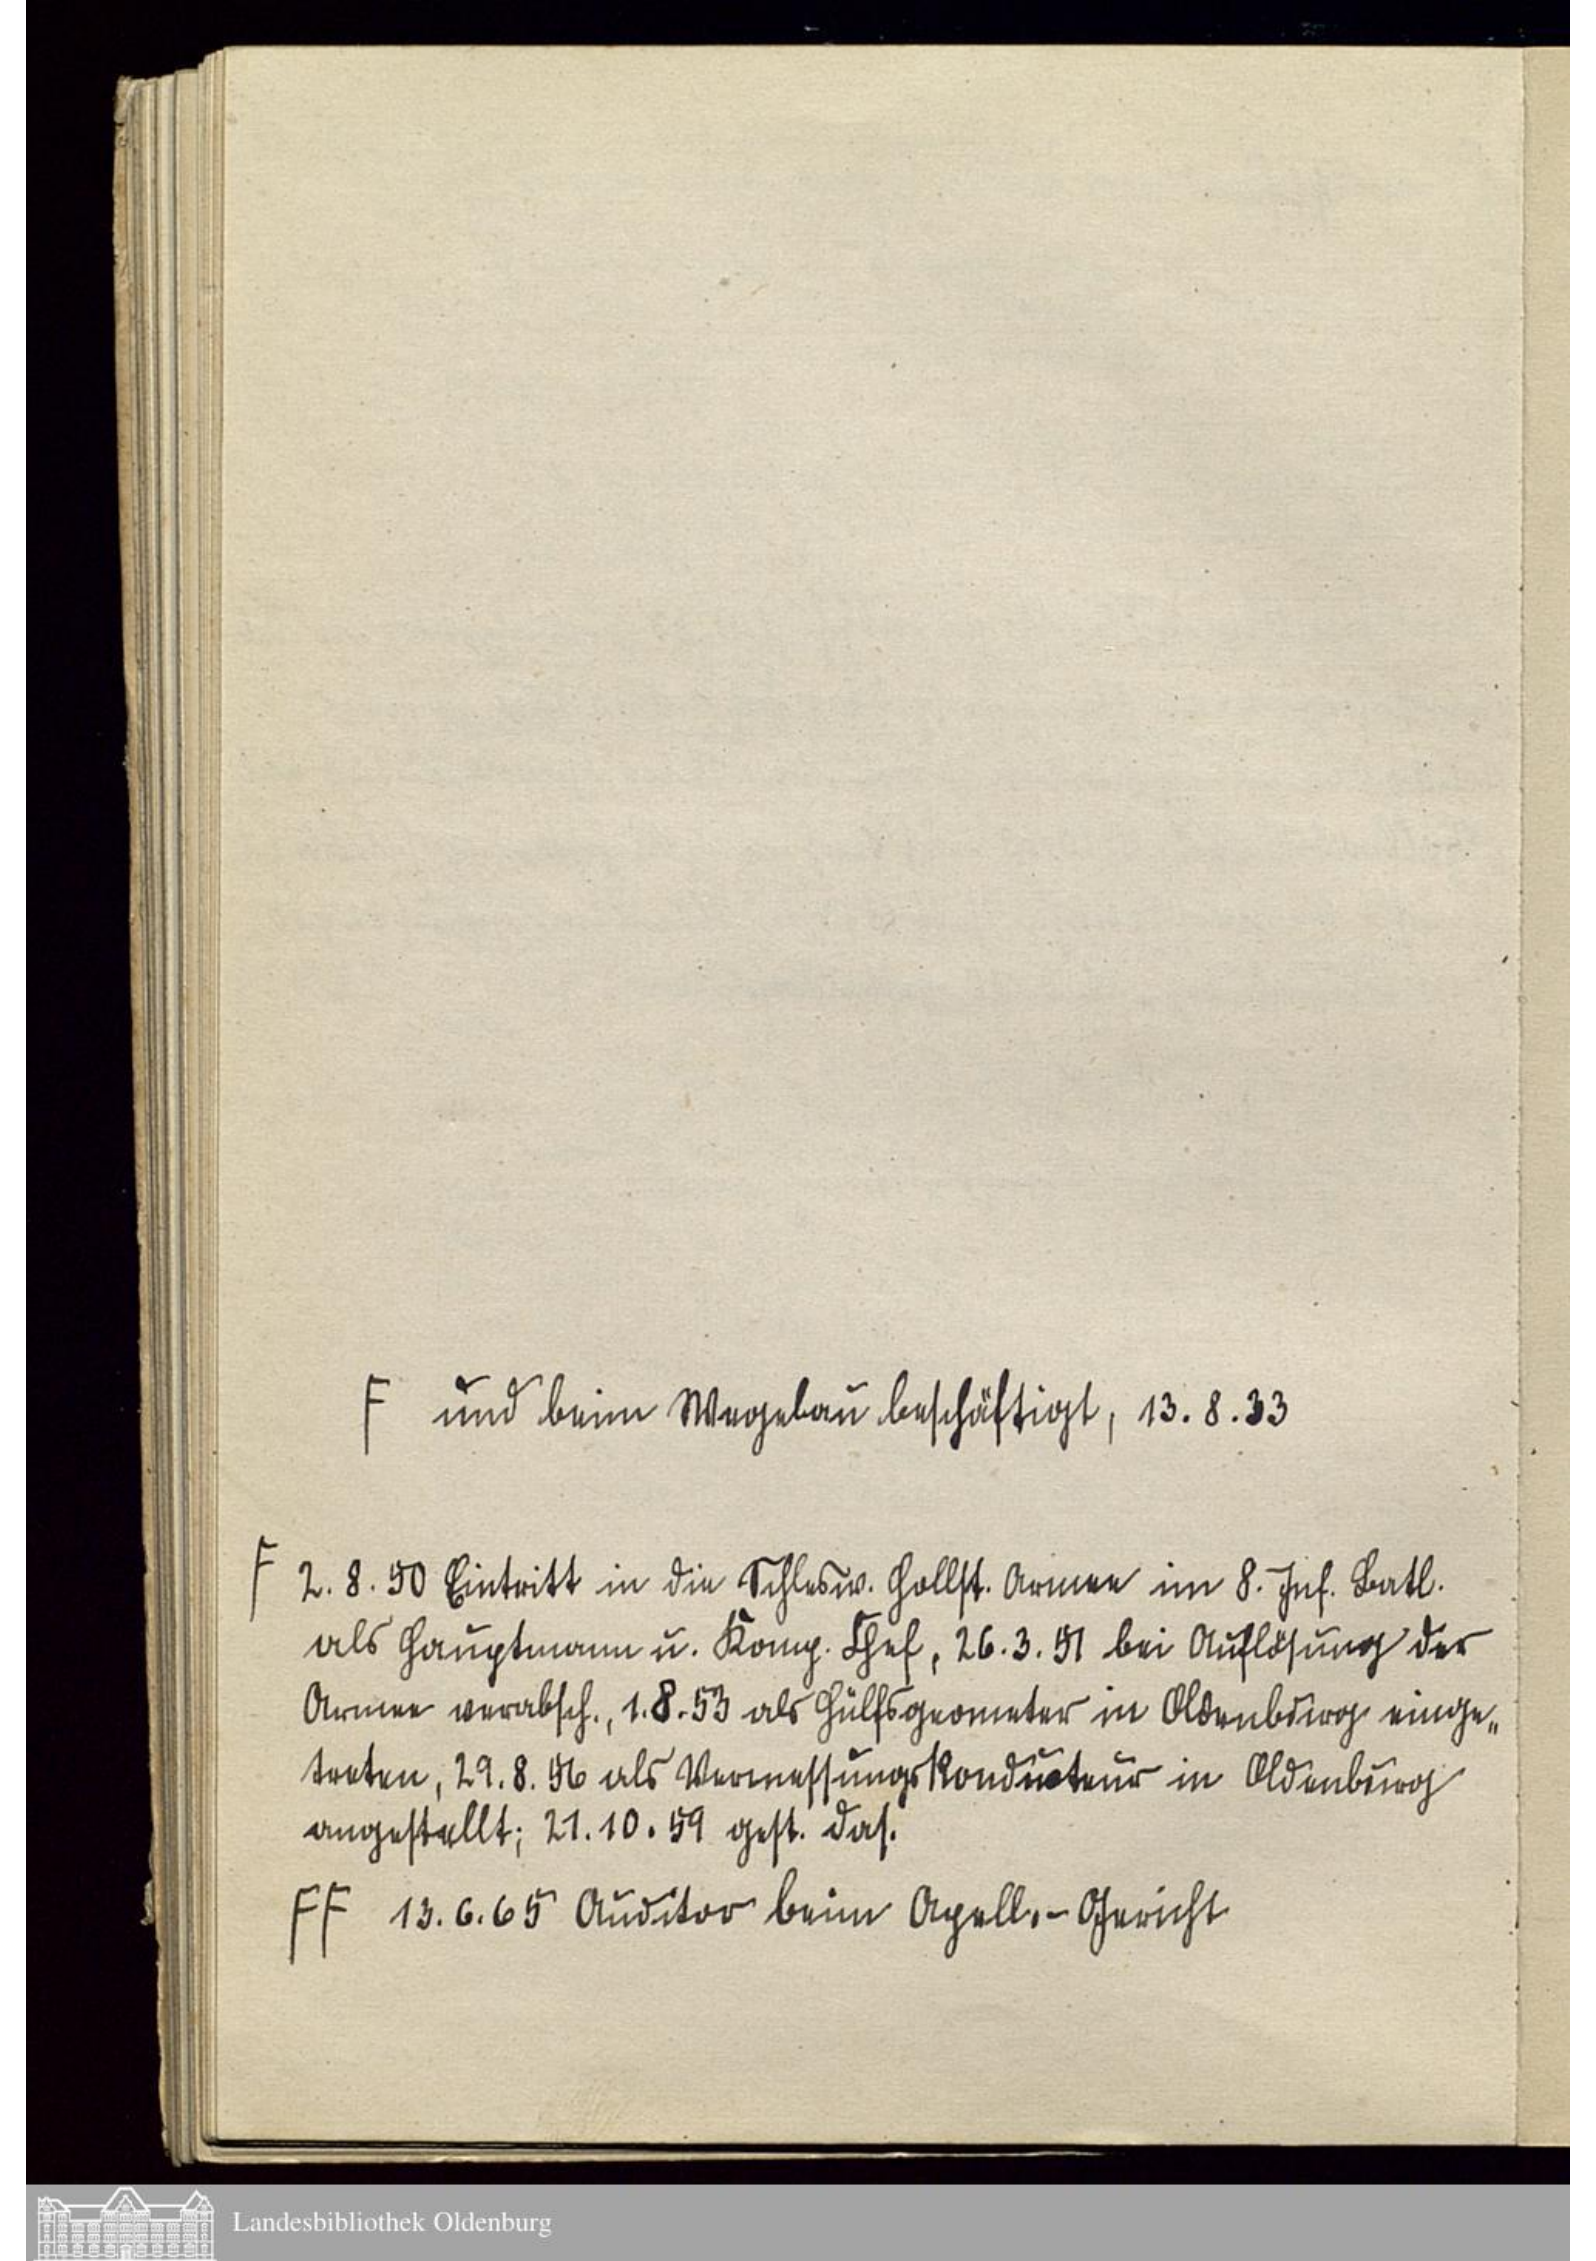 F und beim Wegebau beschäftigt, 13.8.33
F 2.8.50 Eintritt in die Schlesw. Hollst. Armee im 8. Inf. Batl.
als Hauptmann u. Komp. Chef, 26.3.51 bei Auflösung der
Armee verabsch., 1.8.53 als Hülfsgeometer in Oldenburg einge„
treten, 29.8.56 als Vermessungskondukteur in Oldenburg
angestellt; 21.10.59 gest. das.
FF 13.6.65 Auditor beim Apell.-Gericht
Landesbibliothek Oldenburg